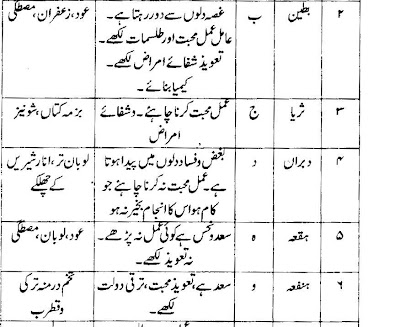 ۲ بطین ب غصہ دلوں سے دور رہتا ہے۔ عود، زعفران، مصطگی
عامل عمل محبت اور طلسمات لکھے۔
تعویذ شفائے امراض لکھے۔
کیمیا بنائے۔
۳ ثریا ج عمل محبت کرنا چاہئے۔ و شفائے بزمہ کتاں، شونیز
امراض
۴ دبراں د بغض و فساد دلوں میں پیدا ہوتا لوبان تر، انار شیریں
ہے۔ عمل محبت نہ کرنا چاہئے جو کے چھلکے
کام ہو اس کا انجام بخیر نہ ہو
۵ ہقعہ ہ سعد و نحس ہے کوئی عمل نہ پڑھے۔ عود، لوبان، مصطگی
نہ تعویذ لکھے۔
۶ ہنفعہ و سعد ہے، تعویذ محبت، ترقی دولت تخم درمنہ ترکی
لکھے۔ و قطرب